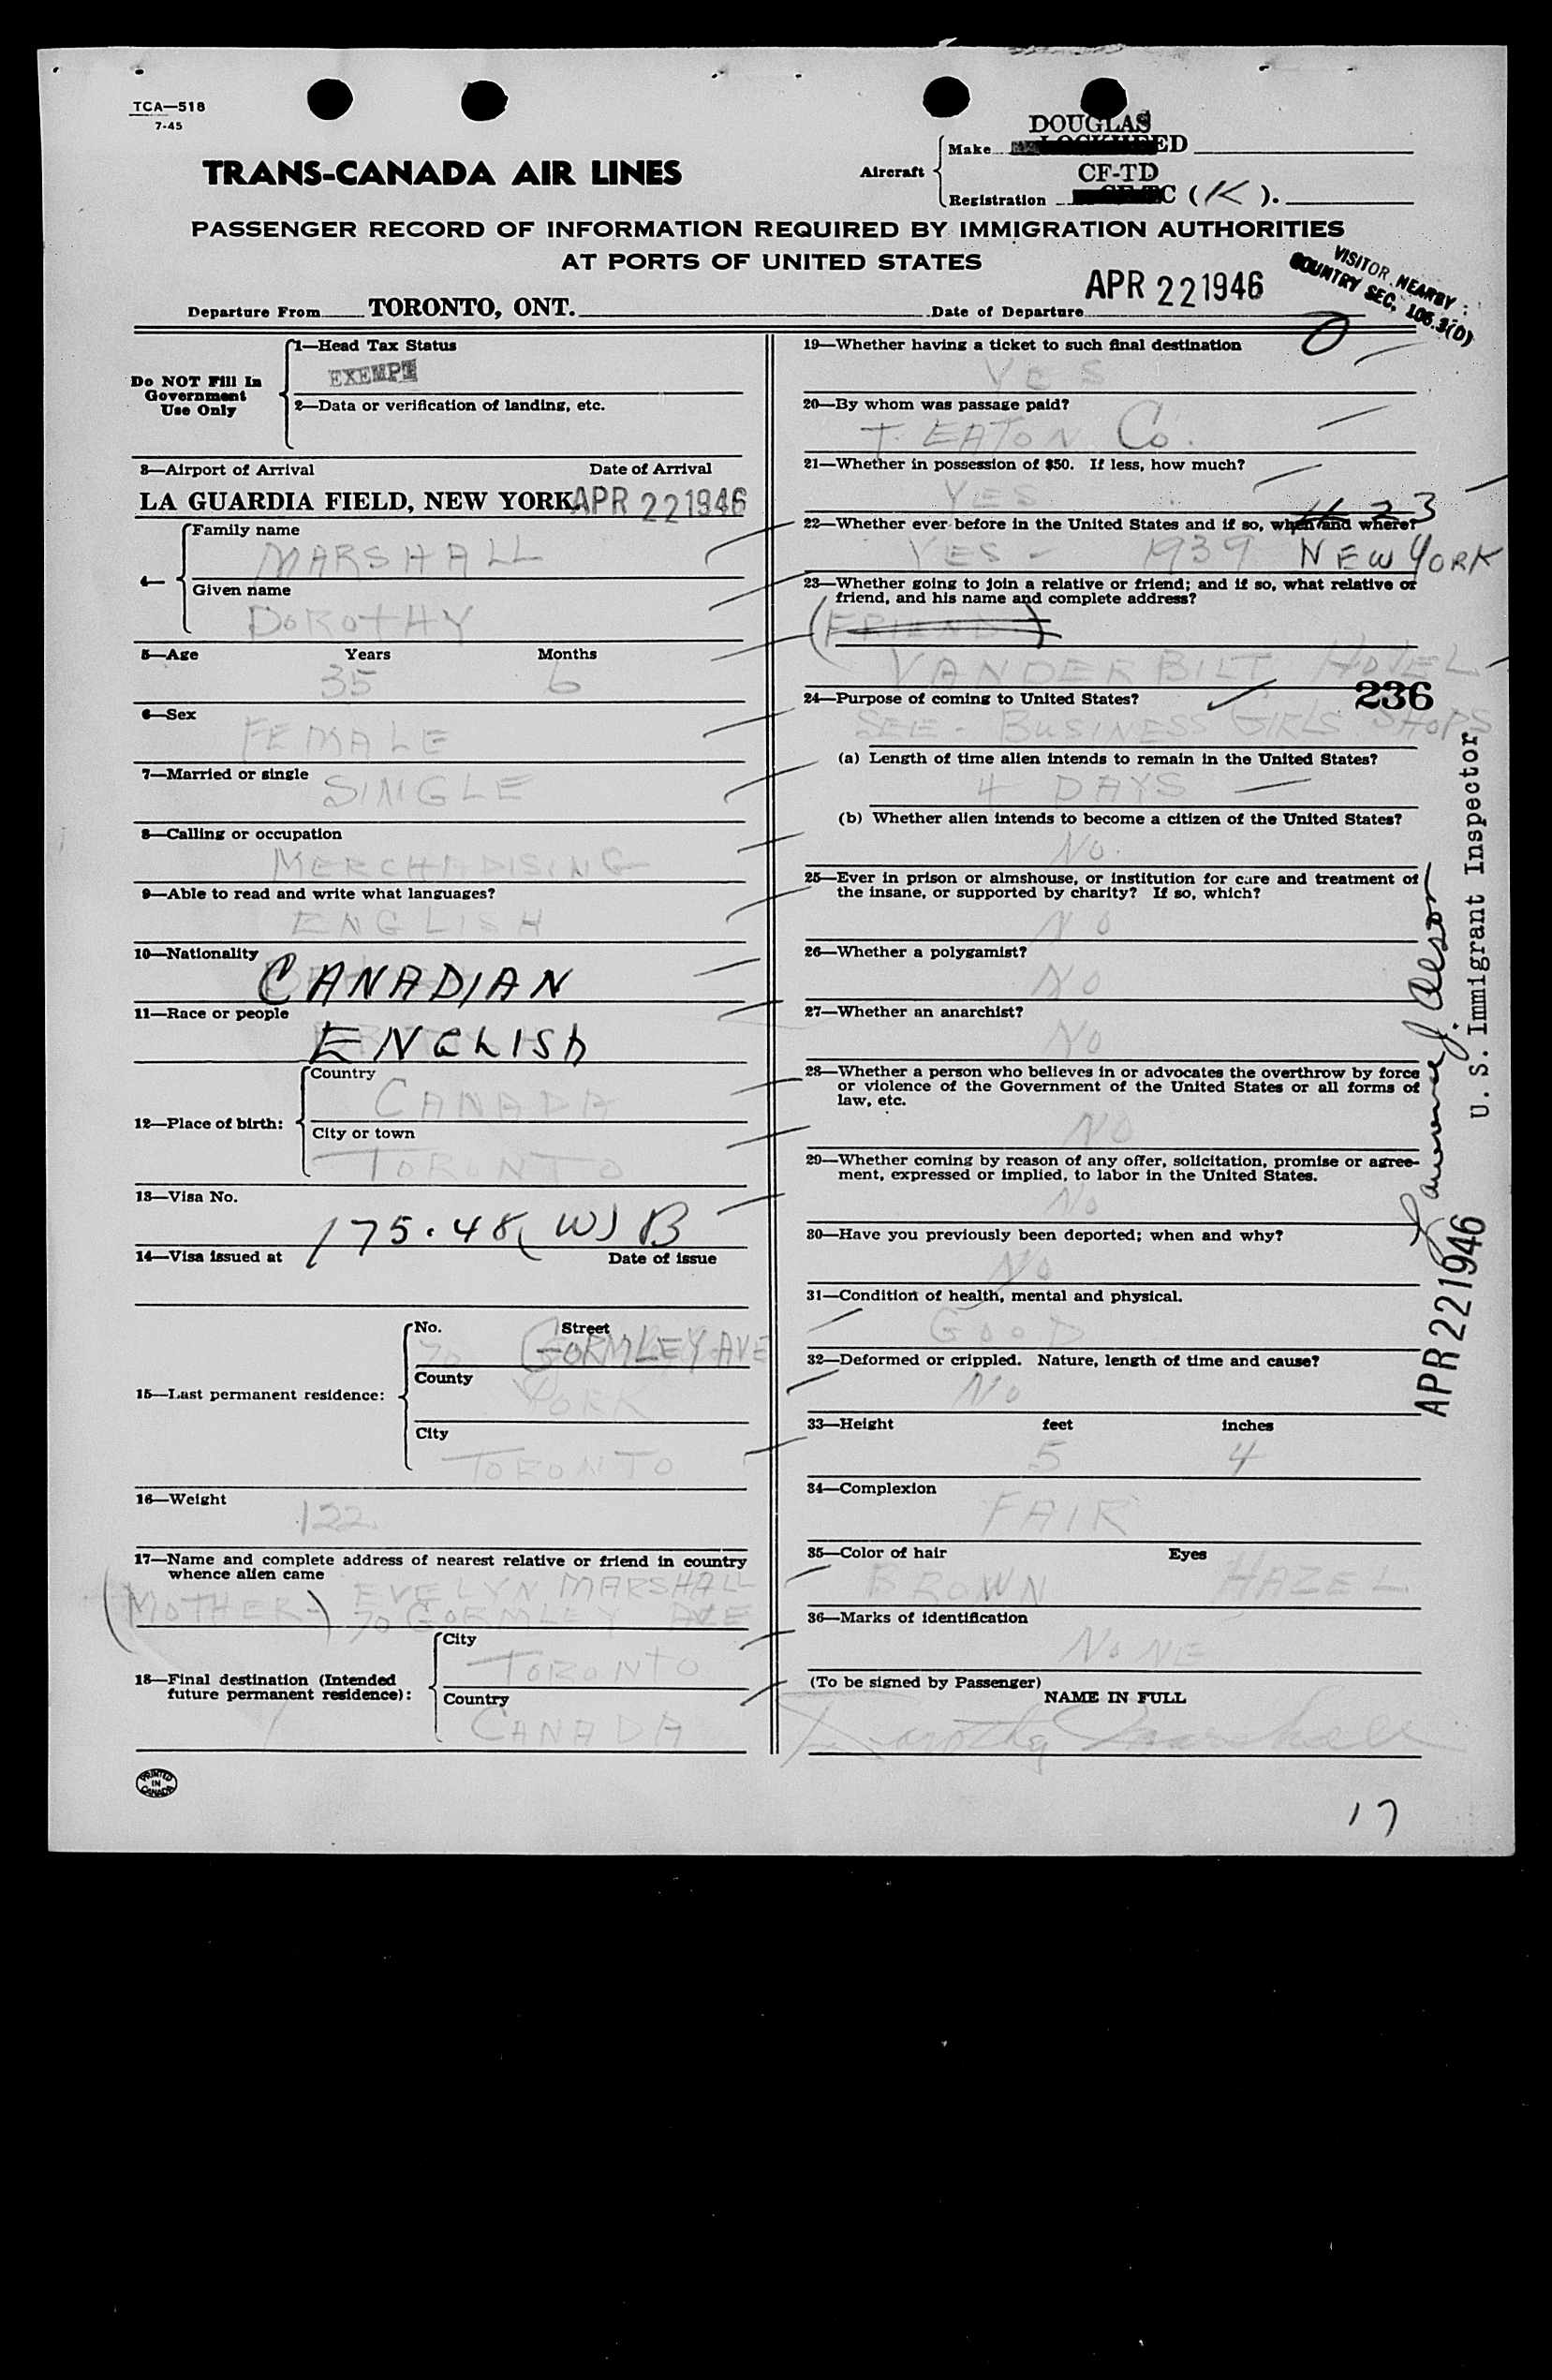 TCA—518
7-45
DOUGLAS
TRANS-CANADA AIR LINES
Aircraft
Make ED
CF-TD
Registration C (K).
PASSENGER RECORD OF INFORMATION REQUIRED BY IMMIGRATION AUTHORITIES
AT PORTS OF UNITED STATES
VISITOR NEARBY
COUNTRY SEC. 106.3(D)
Departure From TORONTO, ONT. Date of Departure APR 22 1946
Do NOT Fill In
Government
Use Only
1—Head Tax Status
EXEMPT
2—Data or verification of landing, etc.
3—Airport of Arrival Date of Arrival
LA GUARDIA FIELD, NEW YORK APR 22 1946
4—
Family name
MARSHALL
Given name
DOROTHY
5—Age Years Months
35 6
6—Sex
FEMALE
7—Married or single
SINGLE
8—Calling or occupation
MERCHADISING
9—Able to read and write what languages?
ENGLISH
10—Nationality
CANADIAN
11—Race or people
ENGLISH
12—Place of birth:
Country
CANADA
City or town
TORONTO
13—Visa No.
175.48(W) B
14—Visa issued at Date of issue
15—Last permanent residence:
No. Street
70 GORMLEY AVE
County
YORK
City
TORONTO
16—Weight
122
17—Name and complete address of nearest relative or friend in country
whence alien came
EVELYN MARSHALL
(MOTHER-) 70 GORMLEY AVE
18—Final destination (Intended
future permanent residence):
City
TORONTO
Country
CANADA
PRINTED
IN
CANADA
19—Whether having a ticket to such final destination
YES
20—By whom was passage paid?
T. EATON Co.
21—Whether in possession of $50. If less, how much?
YES
22—Whether ever before in the United States and if so, when and where?
YES - 1939 NEW YORK
23—Whether going to join a relative or friend; and if so, what relative or
friend, and his name and complete address?
(FRIEND)
VANDERBILT HOTEL
24—Purpose of coming to United States? 236
SEE - BUSINESS GIRLS SHOPS
(a) Length of time alien intends to remain in the United States?
4 DAYS
(b) Whether alien intends to become a citizen of the United States?
NO.
25—Ever in prison or almshouse, or institution for care and treatment of
the insane, or supported by charity? If so, which?
NO
26—Whether a polygamist?
NO
27—Whether an anarchist?
NO
28—Whether a person who believes in or advocates the overthrow by force
or violence of the Government of the United States or all forms of
law, etc.
NO
29—Whether coming by reason of any offer, solicitation, promise or agree-
ment, expressed or implied, to labor in the United States.
No
30—Have you previously been deported; when and why?
No
31—Condition of health, mental and physical.
GOOD
32—Deformed or crippled. Nature, length of time and cause?
No
33—Height feet inches
5 4
34—Complexion
FAIR
35—Color of hair Eyes
BROWN HAZEL
36—Marks of identification
NONE
(To be signed by Passenger)
NAME IN FULL
Dorothy Marshall
U. S. Immigrant Inspector
APR 22 1946
17